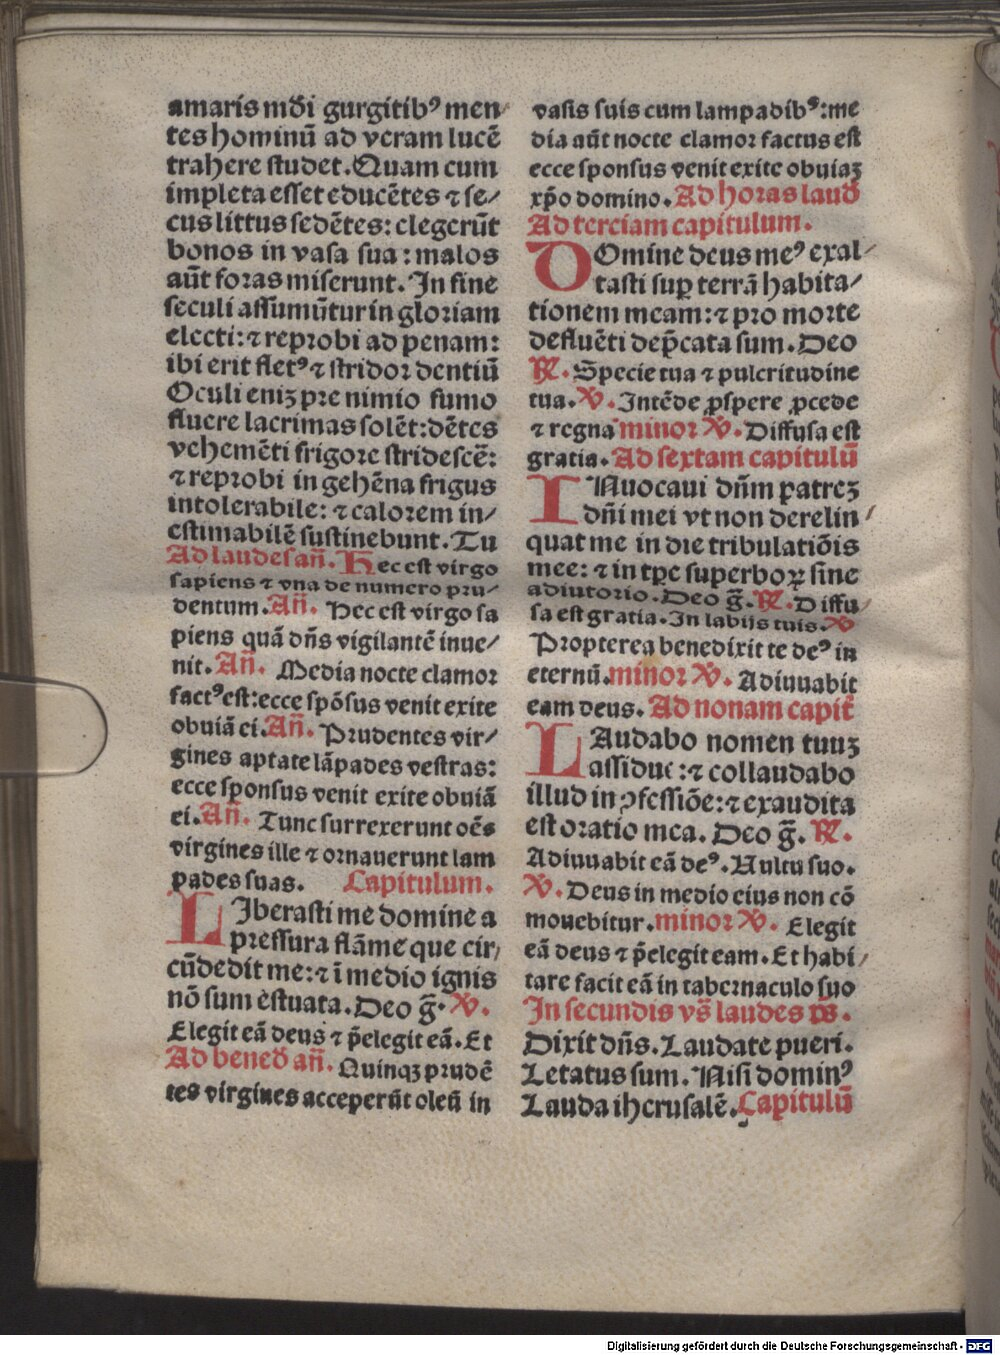 amaris mūdi gurgitibꝰ men-
tes hominū ad veram lucē
trahere studet. Quam cum
impleta esset educētes ⁊ se-
cus littus sedētes: elegerūt
bonos in vasa sua: malos
aūt foras miserunt. In fine
seculi assumūtur in gloriam
electi: ⁊ reprobi ad penam:
ibi erit fletꝰ ⁊ stridor dentiū
Oculi eniꝫ pre nimio fumo
fluere lacrimas solēt: dētes
vehemēti frigore stridescē:
⁊ reprobi in gehēna frigus
intolerabile: ⁊ calorem in-
estimabilē sustinebunt. Tu
Ad laudes añ. Hec est virgo
sapiens ⁊ vna de numero pru-
dentum. Añ. Hec est virgo sa
piens quā dñs vigilantē inue-
nit. Añ. Media nocte clamor
factꝰ est: ecce spōsus venit exite
obuiā ei. Añ. Prudentes vir-
gines aptate lāpades vestras:
ecce sponsus venit exite obuiā
ei. Añ. Tunc surrexerunt oēs
virgines ille ⁊ ornauerunt lam
pades suas. Capitulum.
LIberasti me domine a
pressura flāme que cir-
cūdedit me: ⁊ ī medio ignis
nō sum estuata. Deo g̃. ℣.
Elegit eā deus ⁊ p̄elegit eā. Et
Ad bened̄ añ. Quinqꝫ prudē
tes virgines acceperūt oleū in
vasis suis cum lampadibꝰ: me
dia aūt nocte clamor factus est
ecce sponsus venit exite obuiaꝫ
xp̄o domino. Ad horas laud̄
Ad terciam capitulum.
DOmine deus meꝰ exal-
tasti suꝑ terrā habita-
tionem meam: ⁊ pro morte
defluēti dep̄cata sum. Deo
℟. Specie tua ⁊ pulcritudine
tua. ℣. Intēde ꝓspere ꝓcede
⁊ regna minor ℣. Diffusa est
gratia. Ad sextam capitulū
INuocaui dñm patreꝫ
dñi mei vt non derelin-
quat me in die tribulatiōis
mee: ⁊ in tꝑe superboꝝ sine
adiutorio. Deo g̃. ℟. Diffu-
sa est gratia. In labijs tuis. ℣
Propterea benedixit te deꝰ in
eternū. minor ℣. Adiuuabit
eam deus. Ad nonam capit̄
LAudabo nomen tuuꝫ
assidue: ⁊ collaudabo
illud in ꝯfessiōe: ⁊ exaudita
est oratio mea. Deo g̃. ℟.
Adiuuabit eā deꝰ. Uultu suo.
℣. Deus in medio eius non cō
mouebitur. minor ℣. Elegit
eā deus ⁊ p̄elegit eam. Et habi-
tare facit eā in tabernaculo suo
In secundis vs̄ laudes p̄s.
Dixit dñs. Laudate pueri.
Letatus sum. Nisi dominꝰ
Lauda iherusalē. Capitulū
Digitalisierung gefördert durch die Deutsche Forschungsgemeinschaft - DFG